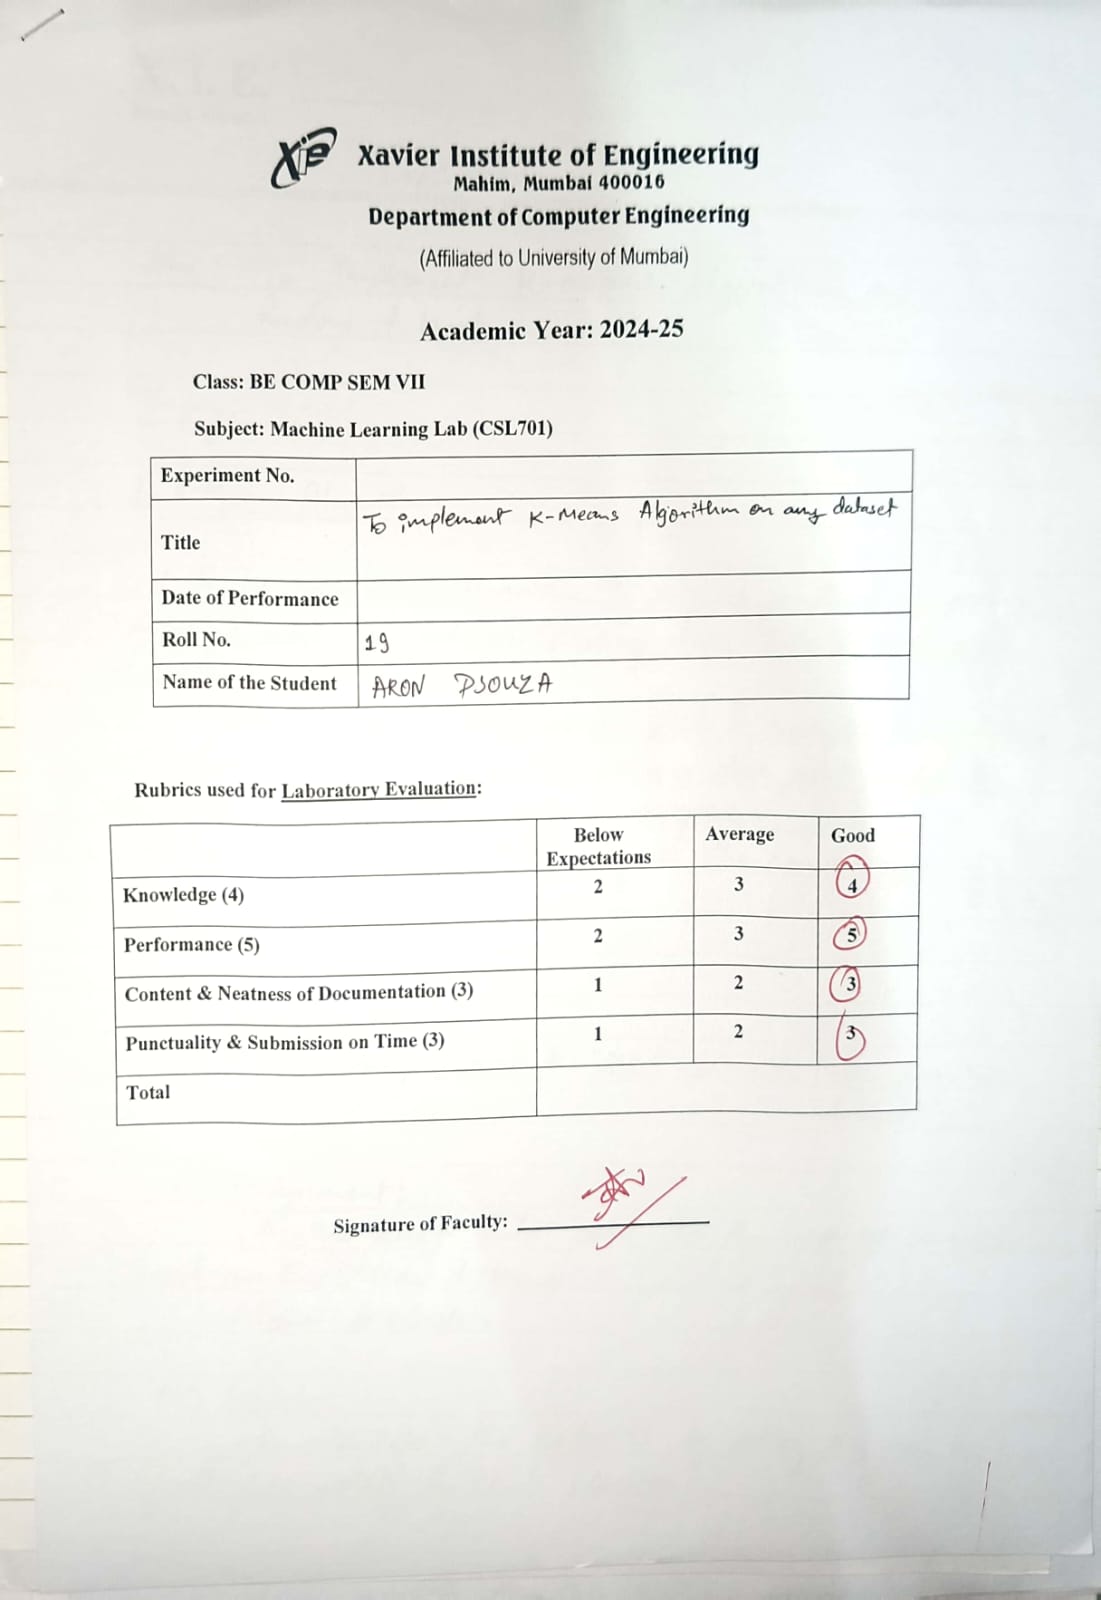 Xie Xavier Institute of Engineering
Mahim, Mumbai 400016
Department of Computer Engineering
(Affiliated to University of Mumbai)
Academic Year: 2024-25
Class: BE COMP SEM VII
Subject: Machine Learning Lab (CSL701)
Experiment No.
Title To implement K-Means Algorithm on any dataset
Date of Performance
Roll No. 19
Name of the Student ARON DSOUZA
Rubrics used for Laboratory Evaluation:
Below Expectations Average Good
Knowledge (4) 2 3 4
Performance (5) 2 3 5
Content & Neatness of Documentation (3) 1 2 3
Punctuality & Submission on Time (3) 1 2 3
Total
Signature of Faculty: